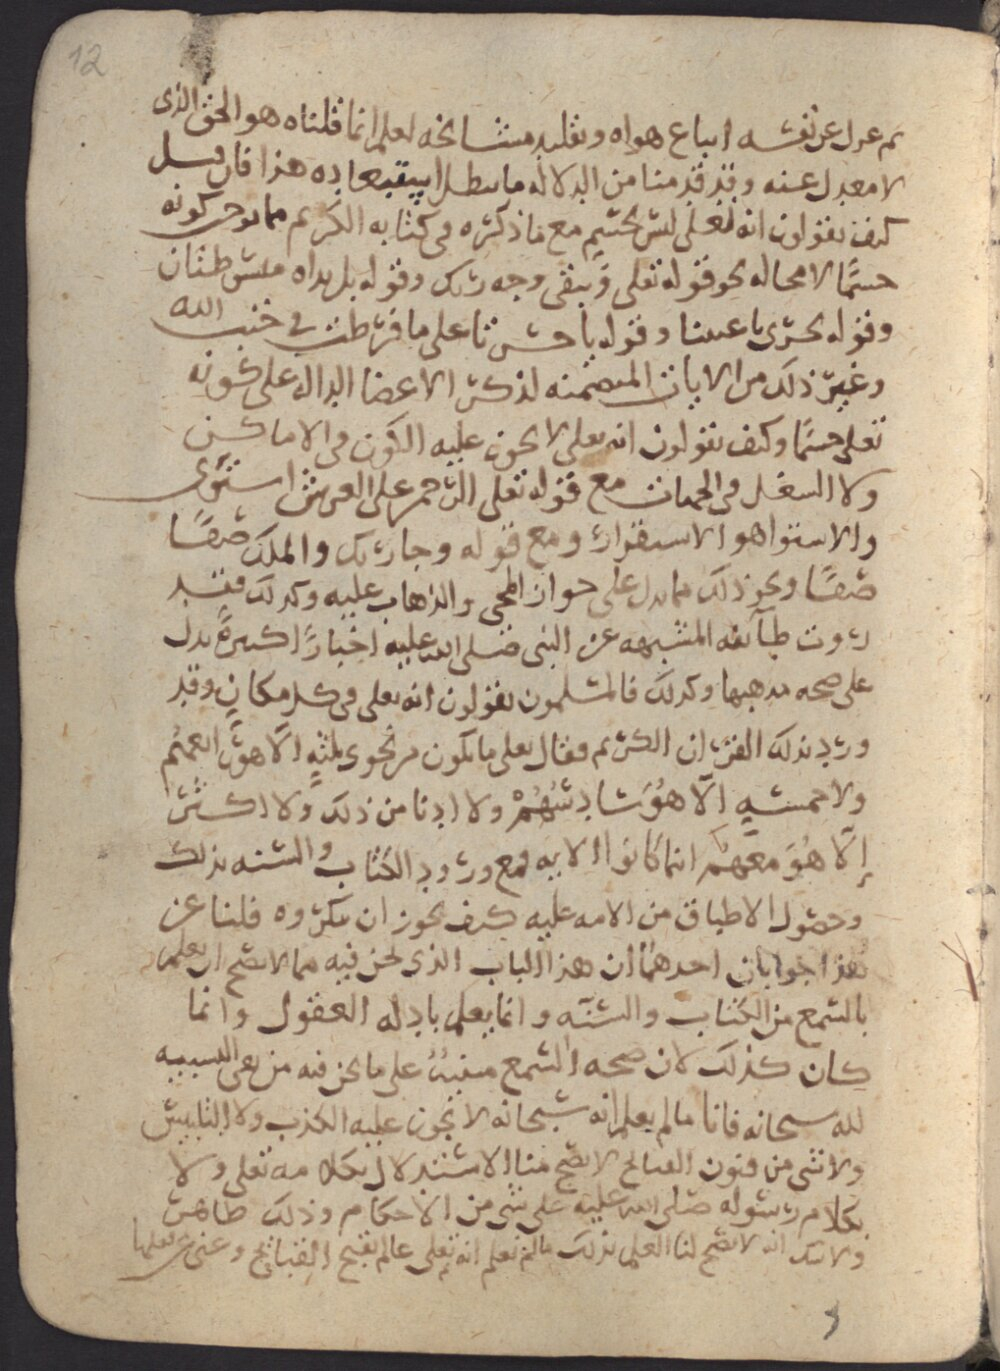 12
ثم عزل عن نفسه اتباع هواه وتقليد مشائخه لعلم انما قلناه هو الحق الذى
لا معدل عنه وقد قدمنا من الدلاله ما يبطل هذا فان قيل
كيف تقولون انه تعلى ليس بجسم مع ما ذكره فى كتابه الكريم مما يوجب كونه
جسمًا لا محاله نحو قوله تعلى ويبقى وجه ربك وقوله بل يداه مبسوطتان
وقوله تجرى باعيننا وقوله يا حسرتا على ما فرطت في جنب الله
وغير ذلك من الايات المتضمنه لذكر الاعضا الداله على كونه
تعلى جسمًا وكيف تقولون انه تعلى لا يجوز عليه الكون فى الاماكن
ولا التنقل فى الجهات مع قوله تعلى الرحمن على العرش استوى
والاستوا هو الاستقرار ومع قوله وجا ربك والملك صفًا
صفًا ونحو ذلك مما يدل على جواز المجى والذهاب عليه وكذلك فقد
روت طآئفه المشبهه عن النبى صلى الله عليه اخبارًا كثيرةً تدل
على صحه مذهبها وكذلك فالمسلمون يقولون انه تعلى فى كل مكانٍ وقد
ورد بذلك القران الكريم فقال تعلى ما يكون من نجوى ثلثهٍ الّا هو رابعهُم
ولا خمسهٍ الّا هُوَ سادسُهُمْ ولا ادنا من ذلك ولا اكثر
إلّا هُوَ معهم اينما كانوا الايه فمع ورود الكتاب والسنه بذلك
وحصول الاطباق من الامه عليه كيف يجوز ان تنكروه قلنا عن
هذا جوابان احدهما ان هذا الباب الذى نحن فيه مما لا يصح ان يعلم
بالسمع من الكتاب والسنّه وانما يعلم بادله العقول وانما
كان كذلك لان صحه السمع مبنيهٌ على ما نحن فيه من نفى التشبيه
لله سبحانه فانا ما لم يعلم انه سبحانه لا يجوز عليه الكذب ولا التلبيس
ولا شى من فنون القبائح لا يصح منا الاستدلال بكلامه تعلى ولا
بكلام رسوله صلى الله عليه على شى من الاحكام وذلك ظاهر
ولا شك انه لا يصح لنا العلم بذلك ما لم نعلم انه تعلى عالم بقبح القبائح وغنى عن فعلها